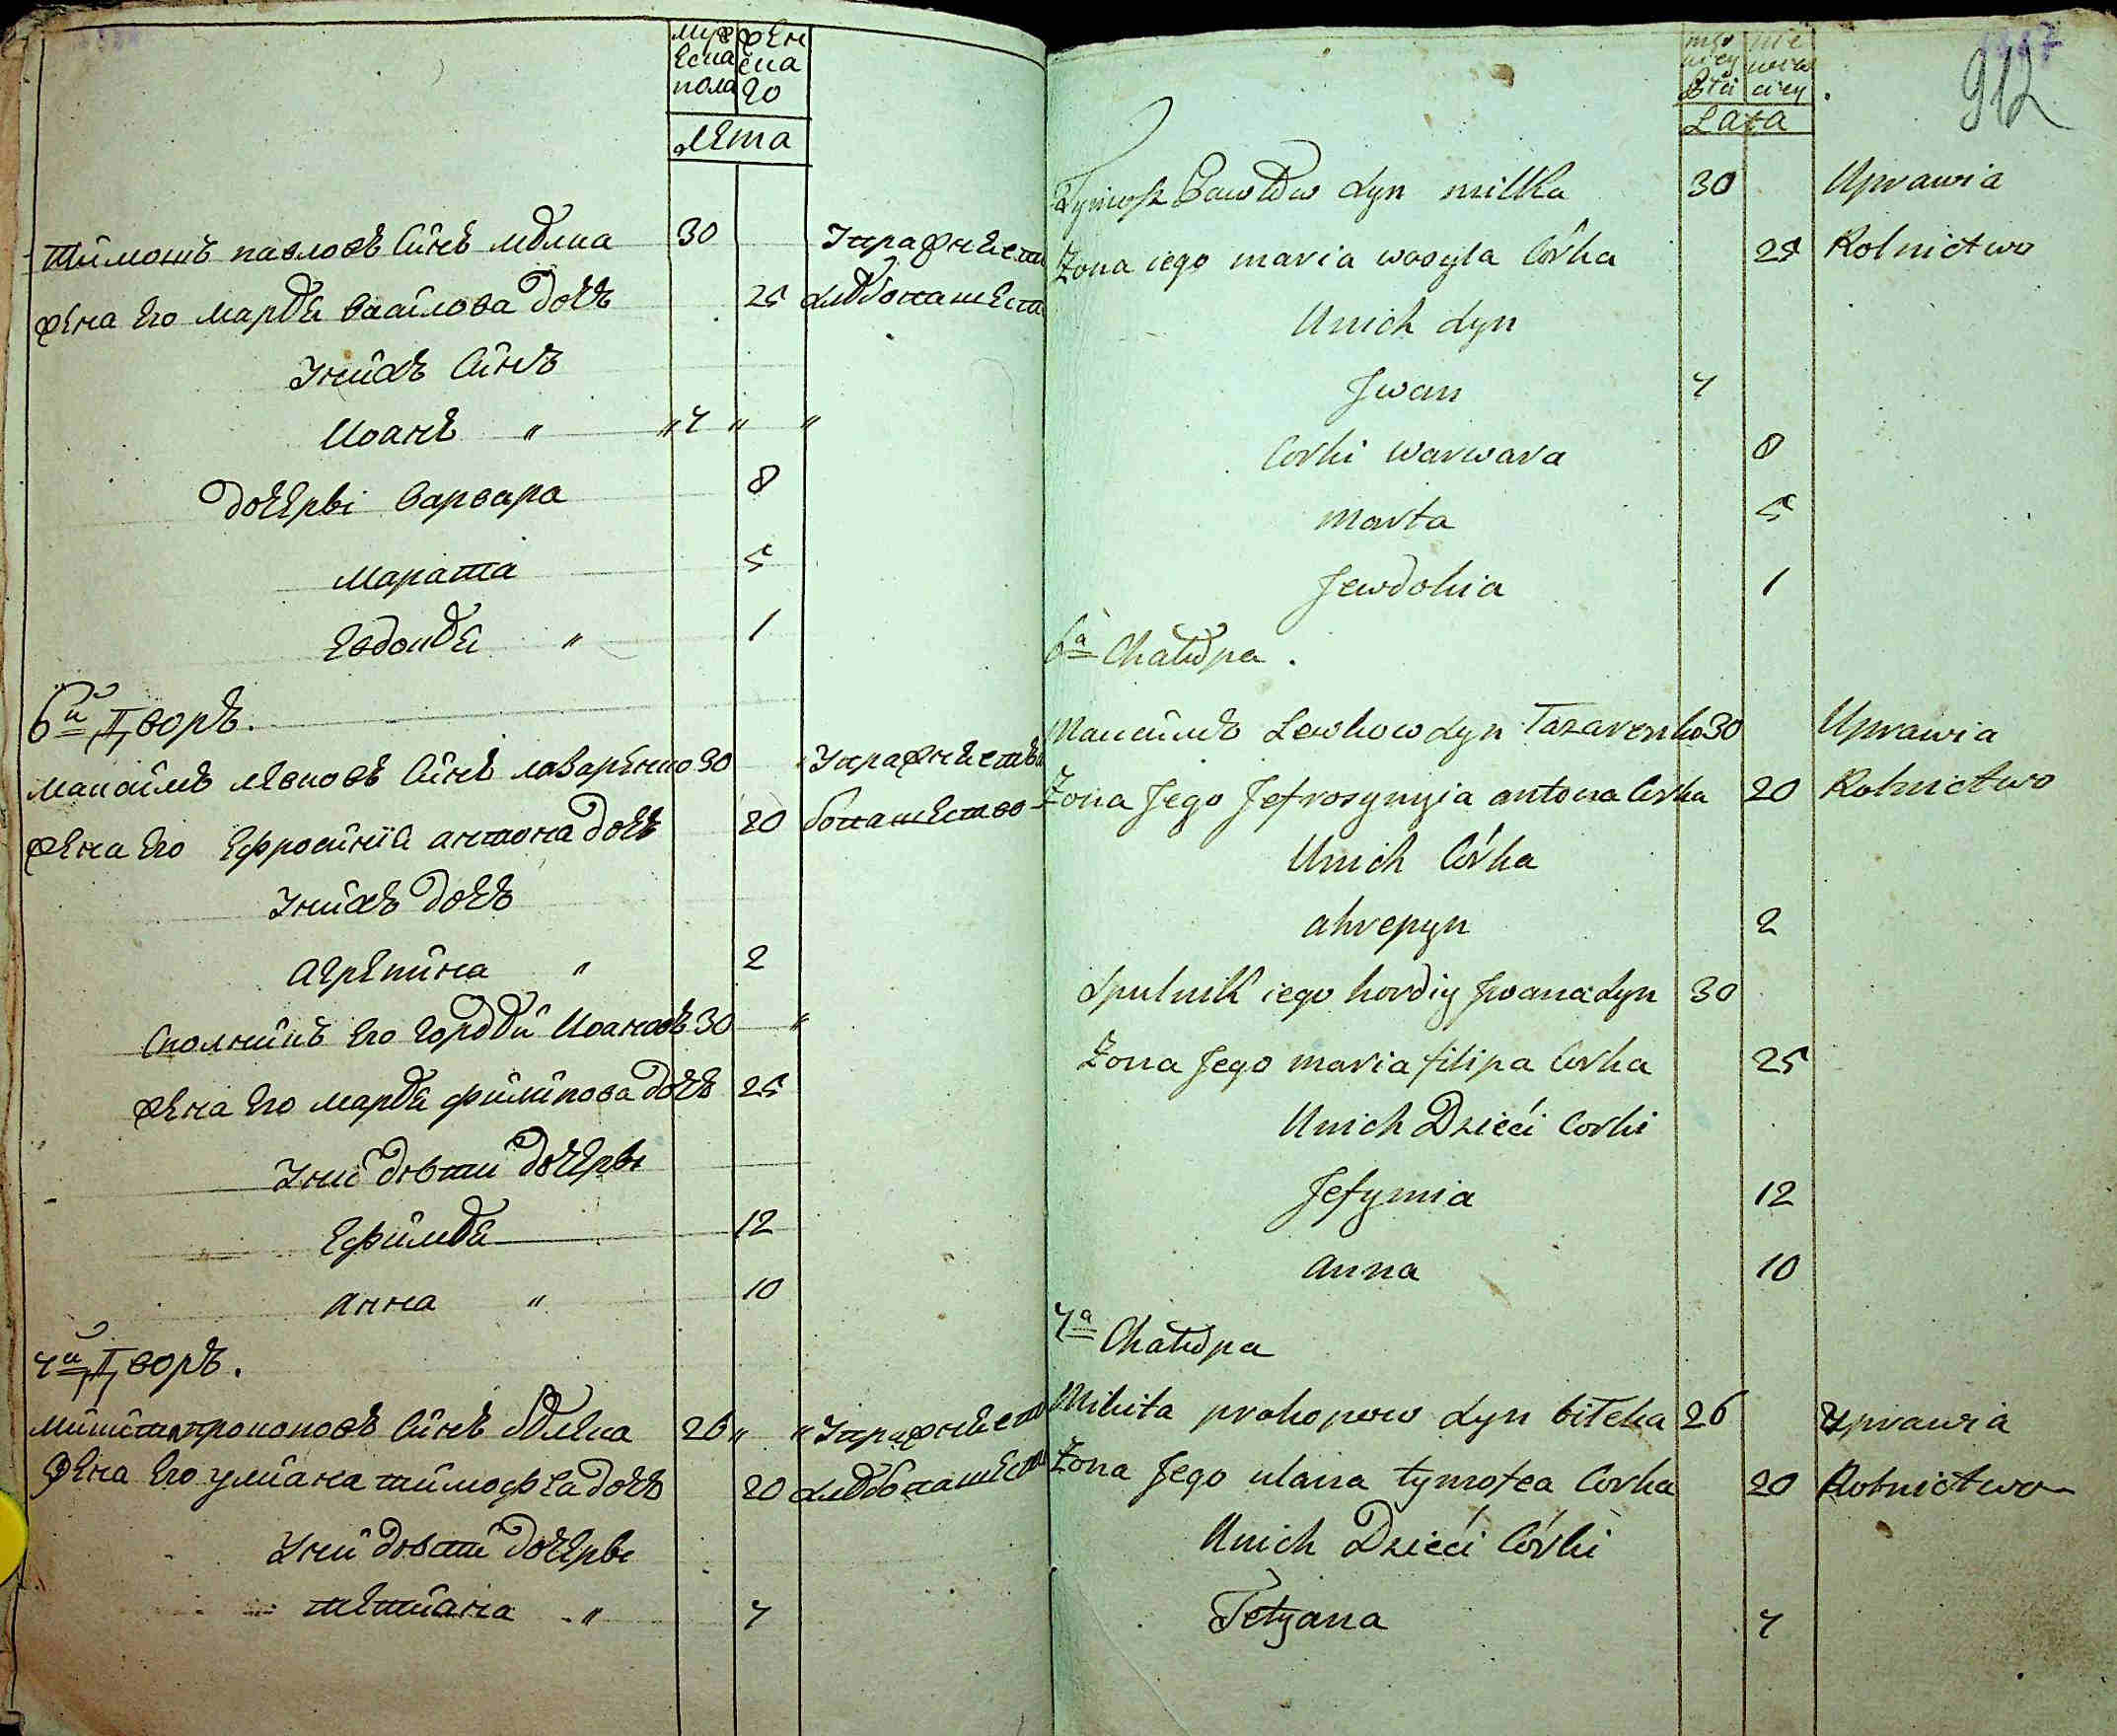 муж ЖЕн
Еска ска
пола го
лЕта
Тимошъ павловъ Синъ мѣлка 30 Упражнест
жЕна Его маръѣ васілова дочъ 25 хлѣбопашЕств
Унихъ Синъ
Иоанъ " " 7 " "
дочЕрьі варвара 8
марата 5
Евдокѣя " 1
6й Дворъ.
максимъ лЕвковъ Синъ лазарЕнко 30 Упражнеств
жЕна Его Ефросиніа антона дочъ 20 бопашЕство
Унихъ дочъ
АгрЕпина " 2
Сполникъ Его гордѣй Иоановъ 30 "
жЕна Его маръѣ филипова дочъ 25
Уни дѣти дочЕрьі
Ефимѣя 12
анна " 10
7й Дворъ.
микита прокоповъ Синъ бѣлЕка 26 " " Упражнест
жЕна Его улиана тимофЕа дочъ 20 хлѣбопашЕст
Уни дѣти дочЕрьі
тЕтиана " 7
Lata
912
Tymosz Pawłów Syn miłka 30 Uprawia
Żona iego maria wasyla Córka 25 Rolnictwo
Unich Syn
Jwan 7
Corki Warwara 8
Marta 5
Jewdokia 1
6a Chałupa.
Maksimъ Lewkow Syn Łazarenko 30 Uprawia
Żona Jego Jefrosynyia antona Corka 20 Rolnictwo
Unich Córka
ahrepyn 2
Spulnik iego hordiy Jwana Syn 30
Żona Jego maria filipa Corka 25
Unich Dzieći Corki
Jefymia 12
Anna 10
7a Chałupa
Mikita prokopow Syn biłeka 26 Uprawia
Żona Jego ulana tymofea Corka 20 Rolnictwo
Unich Dzieći Córki
Tetyana 7